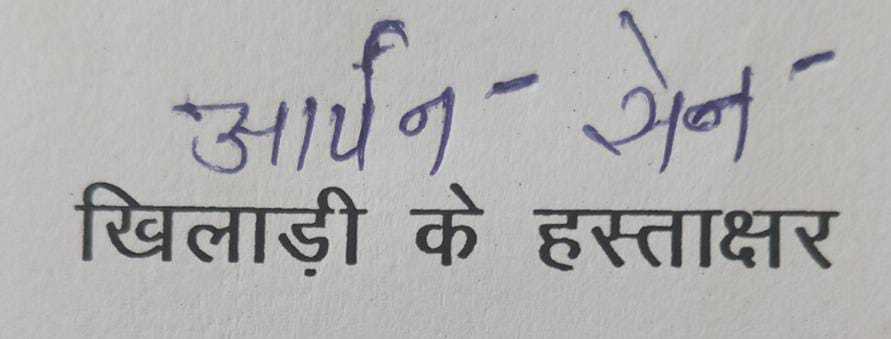 आर्पन - सेन -
खिलाड़ी के हस्ताक्षर